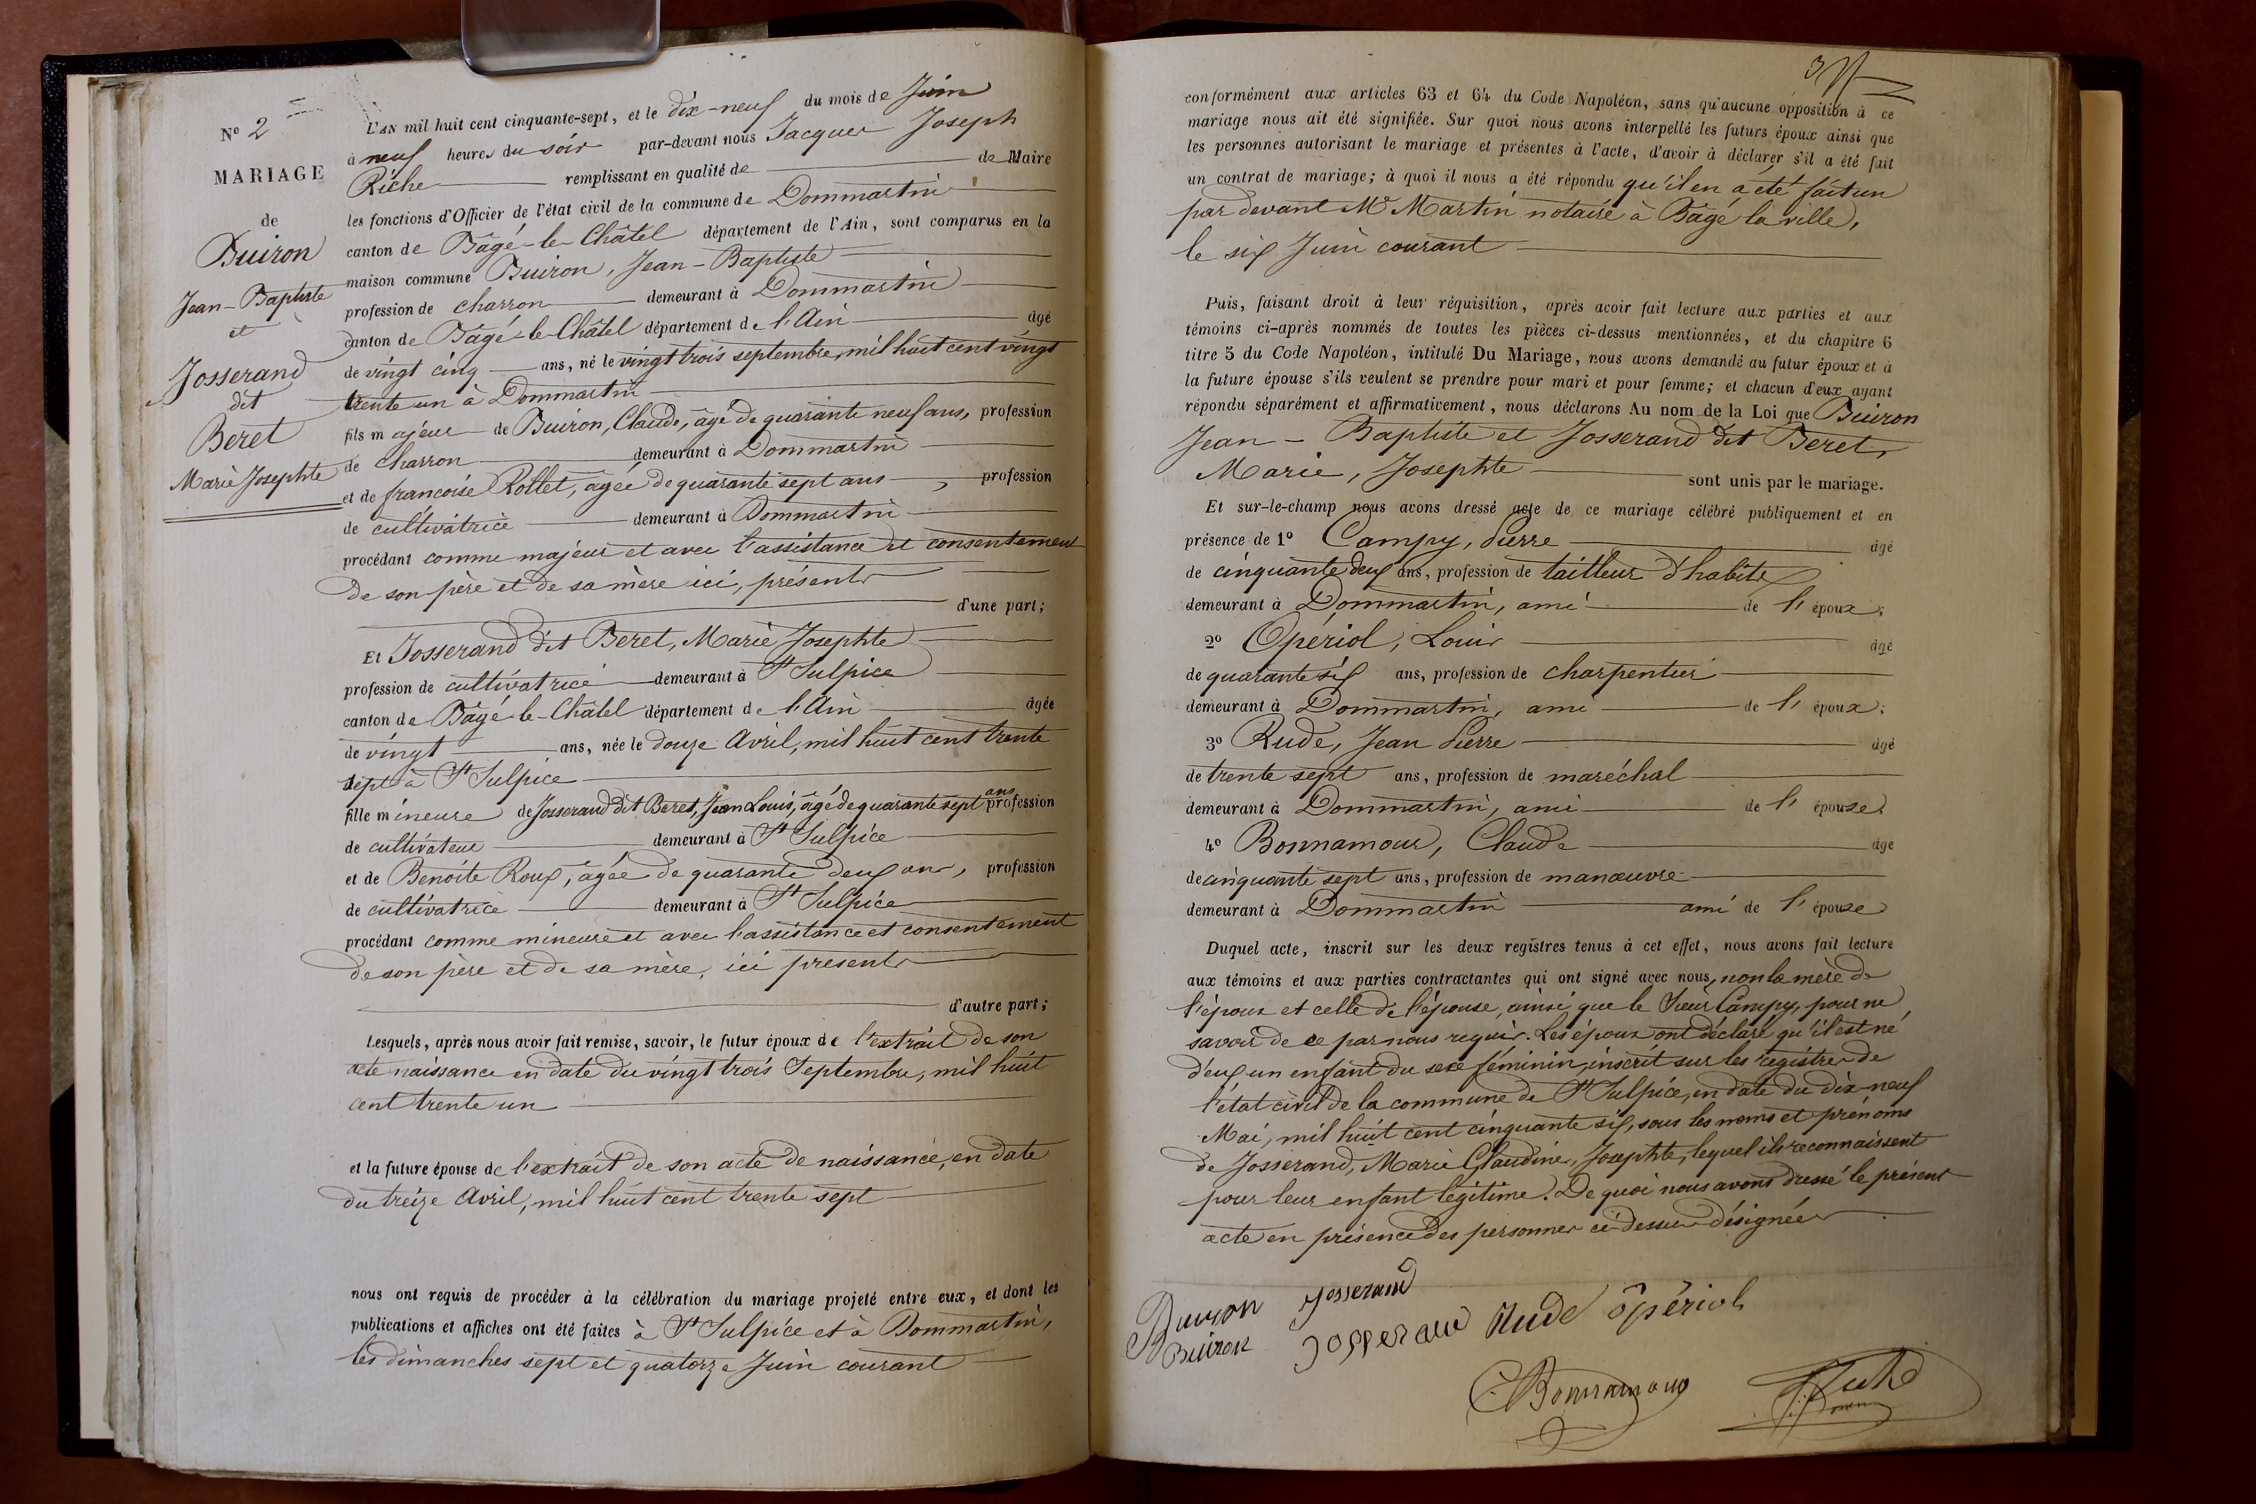 N° 2
MARIAGE
de
Buiron
Jean-Baptiste
et
Josserand
dit
Beret
Marie Josephte
L'AN mil huit cent cinquante-sept, et le dix-neuf du mois de Juin
à neuf heures du soir par-devant nous Jacques Joseph
Riche remplissant en qualité de de Maire
les fonctions d'Officier de l'état civil de la commune de Dommartin
canton de Bâgé-le-Châtel département de l'Ain, sont comparus en la
maison commune Buiron, Jean-Baptiste
profession de charron demeurant à Dommartin
canton de Bâgé-le-Châtel département de l'Ain âgé
de vingt cinq ans, né le vingt trois septembre, mil huit cent vingt
trente un à Dommartin
fils majeur de Buiron, Claude, âgé de quarante neuf ans, profession
de charron demeurant à Dommartin
et de françoise Rollet, âgée de quarante sept ans, profession
de cultivatrice demeurant à Dommartin
procédant comme majeur et avec l'assistance et consentement
de son père et de sa mère ici, présents
d'une part;
Et Josserand dit Beret, Marie Josephte
profession de cultivatrice demeurant à St Sulpice
canton de Bâgé-le-Châtel département de l'Ain âgée
de vingt ans, née le douze Avril, mil huit cent trente
sept à St Sulpice
fille mineure de Josserand dit Beret, Jean Louis, âgé de quarante sept ans profession
de cultivateur demeurant à St Sulpice
et de Benoite Roux, âgée de quarante deux ans, profession
de cultivatrice demeurant à St Sulpice
procédant comme mineure et avec l'assistance et consentement
de son père et de sa mère, ici présents
d'autre part;
Lesquels, après nous avoir fait remise, savoir, le futur époux de l'extrait de son
acte naissance en date du vingt trois Septembre, mil huit
cent trente un
et la future épouse de l'extrait de son acte de naissance, en date
du treize Avril, mil huit cent trente sept
nous ont requis de procéder à la célébration du mariage projeté entre eux, et dont les
publications et affiches ont été faites à St Sulpice et à Dommartin,
les dimanches sept et quatorze Juin courant
conformément aux articles 63 et 64 du Code Napoléon, sans qu'aucune opposition à ce
mariage nous ait été signifiée. Sur quoi nous avons interpellé les futurs époux ainsi que
les personnes autorisant le mariage et présentes à l'acte, d'avoir à déclarer s'il a été fait
un contrat de mariage; à quoi il nous a été répondu qu'il en a été fait un
par devant Me Martin notaire à Bâgé la ville,
le six Juin courant
Puis, faisant droit à leur réquisition, après avoir fait lecture aux parties et aux
témoins ci-après nommés de toutes les pièces ci-dessus mentionnées, et du chapitre 6
titre 5 du Code Napoléon, intitulé Du Mariage, nous avons demandé au futur époux et à
la future épouse s'ils veulent se prendre pour mari et pour femme; et chacun d'eux ayant
répondu séparément et affirmativement, nous déclarons Au nom de la Loi que Buiron
Jean-Baptiste et Josserand dit Beret,
Marie, Josephte sont unis par le mariage.
Et sur-le-champ nous avons dressé acte de ce mariage célébré publiquement et en
présence de 1° Campy, Pierre âgé
de cinquante deux ans, profession de tailleur d'habits
demeurant à Dommartin, ami de l'époux;
2° Opériol, Louis âgé
de quarante six ans, profession de charpentier
demeurant à Dommartin, ami de l'époux;
3° Rude, Jean Pierre âgé
de trente sept ans, profession de maréchal
demeurant à Dommartin, ami de l'épouse
4° Bonnamour, Claude âgé
de cinquante sept ans, profession de manœuvre
demeurant à Dommartin ami de l'épouse
Duquel acte, inscrit sur les deux registres tenus à cet effet, nous avons fait lecture
aux témoins et aux parties contractantes qui ont signé avec nous, non la mère de
l'époux et celle de l'épouse, ainsi que le Sieur Campy, pour ne
savoir de ce par nous requis. Les époux ont déclaré qu'il est né
d'eux un enfant du sexe féminin, inscrit sur les registres de
l'état civil de la commune de St Sulpice, en date du dix-neuf
Mai, mil huit cent cinquante six, sous les noms et prénoms
de Josserand, Marie Claudine, Josephte, lequel ils reconnaissent
pour leur enfant légitime. De quoi nous avons dressé le présent
acte en présence des personnes ci-dessus désignées
Buiron Josserand
Buiron Josserand Rude Opériol
C. Bonnamour